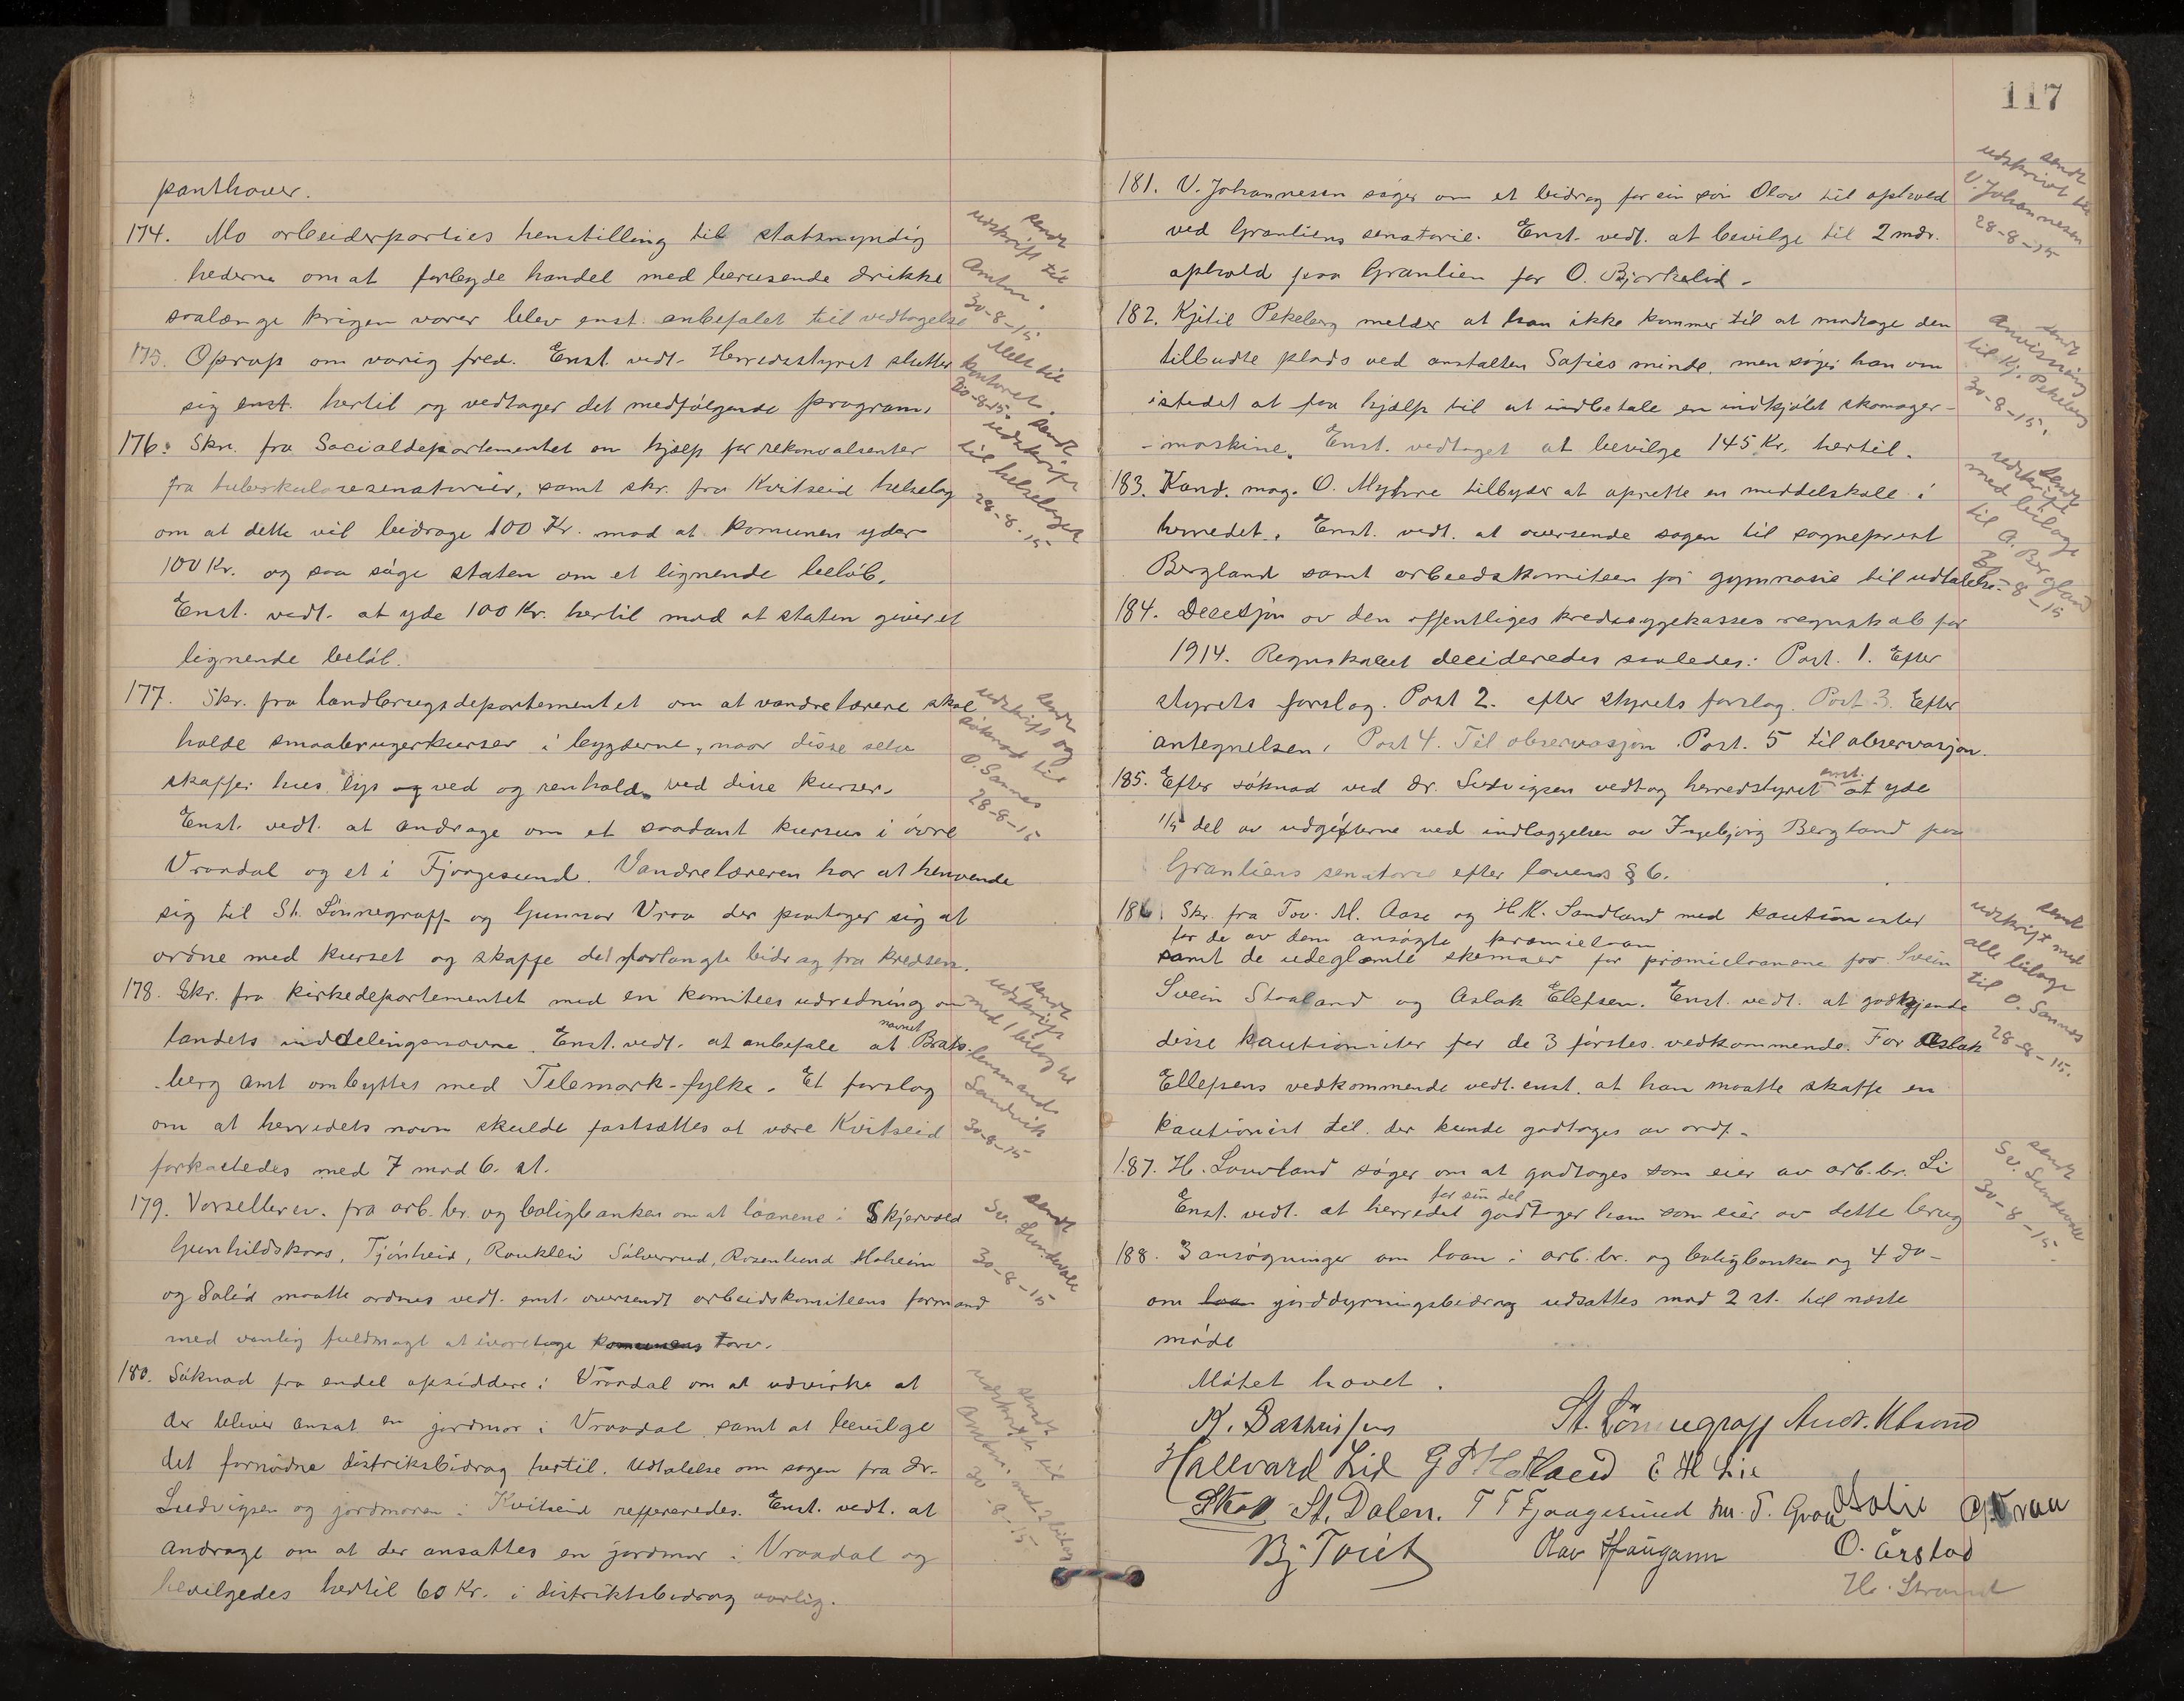 panthaver.
174. Mo arbeiderparties henstilling til statsmyndig
hederne om at forbyde handel med berusende drikke
saalænge krigen varer blev enst. anbefalet til vedtagelse
sendt
udskrift til
Amtm.
30-8-15
175. Oprop om varig fred. Enst. vedt. Herredsstyret slutter
sig enst. hertil og vedtager det medfølgende program.
Melt til
kontoret.
30-8-15.
176. Skr. fra Socialdepartementet om hjælp for rekonvalsenter
fra tuberkulosesenatorier, samt skr. fra Kvitseid helselag
om at dette vil bidrage 100 Kr. mod at komunen yder
100 Kr. og saa søge staten om et lignende beløb.
Enst. vedt. at yde 100 Kr. hertil mod at staten giver et
lignende beløb.
sendt
udskrift
til helselaget
28-8-15
177. Skr. fra landbrugsdepartementet om at vandrelærere skal
holde smaabrugerkurser i bygderne, naar disse selv
skaffer hus, lys og ved og renhold ved disse kurser.
Enst. vedt. at andrage om et saadant kursus i øvre
Vraadal og et i Fjaagesund. Vandrelæreren har at henvende
sig til St. Lønnegraff og Gunnar Vraa der paatager sig at
ordne med kurset og skaffe det forlangte bidrag fra kredsen.
sendt
udskrift og
søknad til
O. Sannes
28-8-15
178. Skr. fra kirkedepartementet med en komitees udredning om
landets inddelingsnavne. Enst. vedt. at anbefale at navnet Brats-
berg amt ombyttes med Telemark-fylke. Et forslag
om at herredets navn skulde fastsættes at være Kvitseid
forkastedes med 7 mod 6. st.
sendt
udskrift
med 1 bilag til
lensmand
Sandvik
30-8-15
179. Varsellerev. fra arb. br. og boligbanken om at laanene i Skjervold
Gunhildskaas, Tjønheid, Rauklein Sølverud, Rosenlund Moheim
og Solid maatte ordnes vedt. enst. oversendt arbeidskomiteens formand
med vanlig fuldmagt at ivaretage komunens tarv.
sendt
Sv. Sundevale
30-8-15
180. Søknad fra endel opsiddere i Vraadal om at udvirke at
der bliver ansat en jordmor i Vraadal samt at bevilge
det fornødne distriksbidrag hertil. Udtalelse om sagen fra Dr.
Ludvigsen og jordmoren i Kvitseid reffereredes. Enst. vedt. at
andrage om at der ansattes en jordmor i Vraadal og
bevilgedes hertil 60 Kr. i distriktsbidrag aarlig.
sendt
udskrift til
Amtm. med 2 bilag
30-8-15
117
181. V. Johannesen søger om et bidrag for sin søn Olav til ophold
ved Granliens senatorie. Enst. vedt. at bevilge til 2 mdr.
ophold paa Granlien for O. Bjørkelid.
sendt
udskrivt til
V. Johannesen
28-8-15
182. Kjitil Pekeberg melder at han ikke kommer til at modtage den
tilbudte plads ved anstalten Sofies minde, men søger han om
istedet at faa hjælp til at indbetale en indkjøbt skomager-
-maskine. Enst. vedtaget at bevilge 145 Kr. hertil.
sendt
Anvisning
til Kj. Pekeberg
30-8-15.
183. Kand. mag. O. Myhre tilbyder at oprette en middelskole i
herredet. Enst. vedt. at oversende sagen til sogneprest
Bergland samt arbeedskomiteen for gymnasie til udtalelse.
sendt
udskrift
med bilage
til A. Bergland
-8-15
184. Decesjon av den offentliges kredssygekasses regnskab for
1914. Regnskabet decideredes saaledes: Post. 1. Efter
styrets forslag. Post 2. efter styrets forslag. Post 3. Efter
antegnelsen. Post 4. Til observasjon. Post. 5 til observasjon.
185. Efter søknad ved Dr. Ludvigsen vedtog herredstyret enst. at yde
1/5 del av udgifterne ved indlæggelsen av Ingebjørg Bergland paa
Granliens senatorie efter lovens § 6.
186. Skr. fra Tov. M. Aase og H.K. Sandland med kautionister
for de av dem ansøgte præmielaan
samt de udeglemte skemaer for præmielaanene for Svein
Svein Staaland og Aslak Elefsen. Enst. vedt. at godkjende
disse kautionister for de 3 førstes vedkommende. For Aslak
Ellefsens vedkommende vedt. enst. at han maatte skaffe en
kautionist til. der kunde godtages av ordf.
sendt
udskrift med
alle bilage
til O. Sannes
28-8-15.
187. H. Lauvland søger om at godtages som eier av arb. br. Li
Enst. vedt. at herredet for sin del godtager ham som eier av dette brug
sendt
Sv. Sundevale
30-8-15
188. 3 ansøgninger om laan i arb. br. og boligbanken og 4 do-
om laan jorddyrningsbidrag udsattes mod 2 st. til næste
møde
Møtet hævet.
St. Lönnegraff
Hallvard Lid
St. Dalen. T T Fjaagesund
G. Vraa
O. Årstad
H. Strand